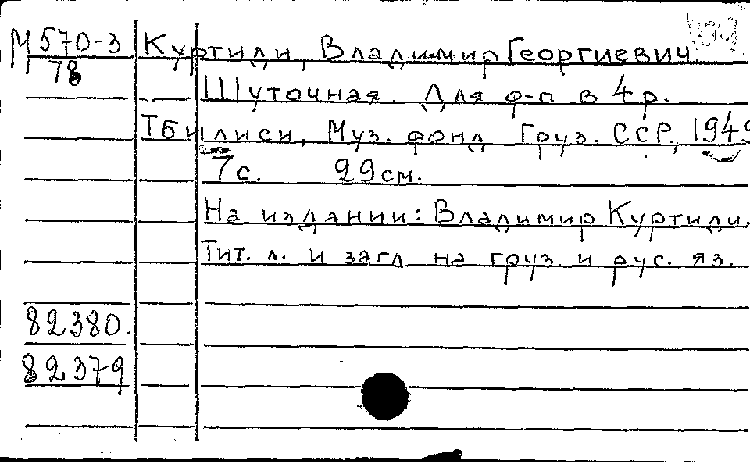 М 570-3 Куртиди, Владимир Георгиевич.
78
Шуточная. Для ф-п в 4 р.
Тбилиси, Муз. фонд Груз. ССР, 1949
7 с. 29 см.
На издании: Владимир Куртиди.
Тит. л. и загл на груз. и рус. яз.
82380.
82379